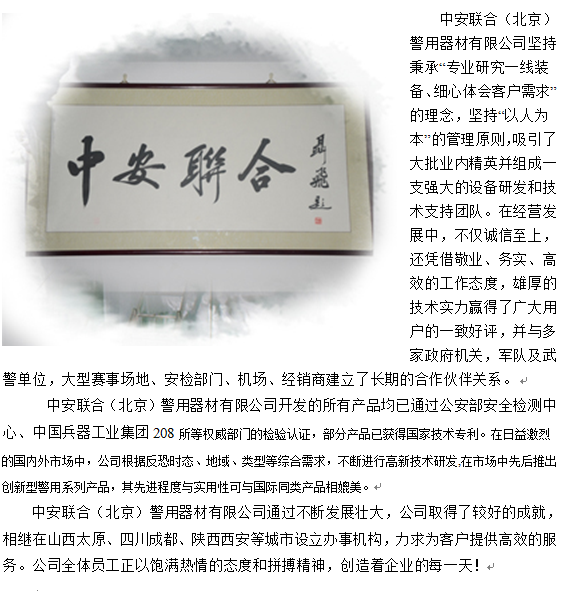 中安聯合
聶飛題
中安联合（北京）
警用器材有限公司坚持
秉承“专业研究一线装
备、细心体会客户需求”
的理念，坚持“以人为
本”的管理原则,吸引了
大批业内精英并组成一
支强大的设备研发和技
术支持团队。在经营发
展中，不仅诚信至上，
还凭借敬业、务实、高
效的工作态度，雄厚的
技术实力赢得了广大用
户的一致好评，并与多
家政府机关，军队及武
警单位，大型赛事场地、安检部门、机场、经销商建立了长期的合作伙伴关系。
中安联合（北京）警用器材有限公司开发的所有产品均已通过公安部安全检测中
心、中国兵器工业集团 208 所等权威部门的检验认证，部分产品已获得国家技术专利。在日益激烈
的国内外市场中，公司根据反恐时态、地域、类型等综合需求，不断进行高新技术研发,在市场中先后推出
创新型警用系列产品，其先进程度与实用性可与国际同类产品相媲美。
中安联合（北京）警用器材有限公司通过不断发展壮大，公司取得了较好的成就，
相继在山西太原、四川成都、陕西西安等城市设立办事机构，力求为客户提供高效的服
务。公司全体员工正以饱满热情的态度和拼搏精神，创造着企业的每一天！